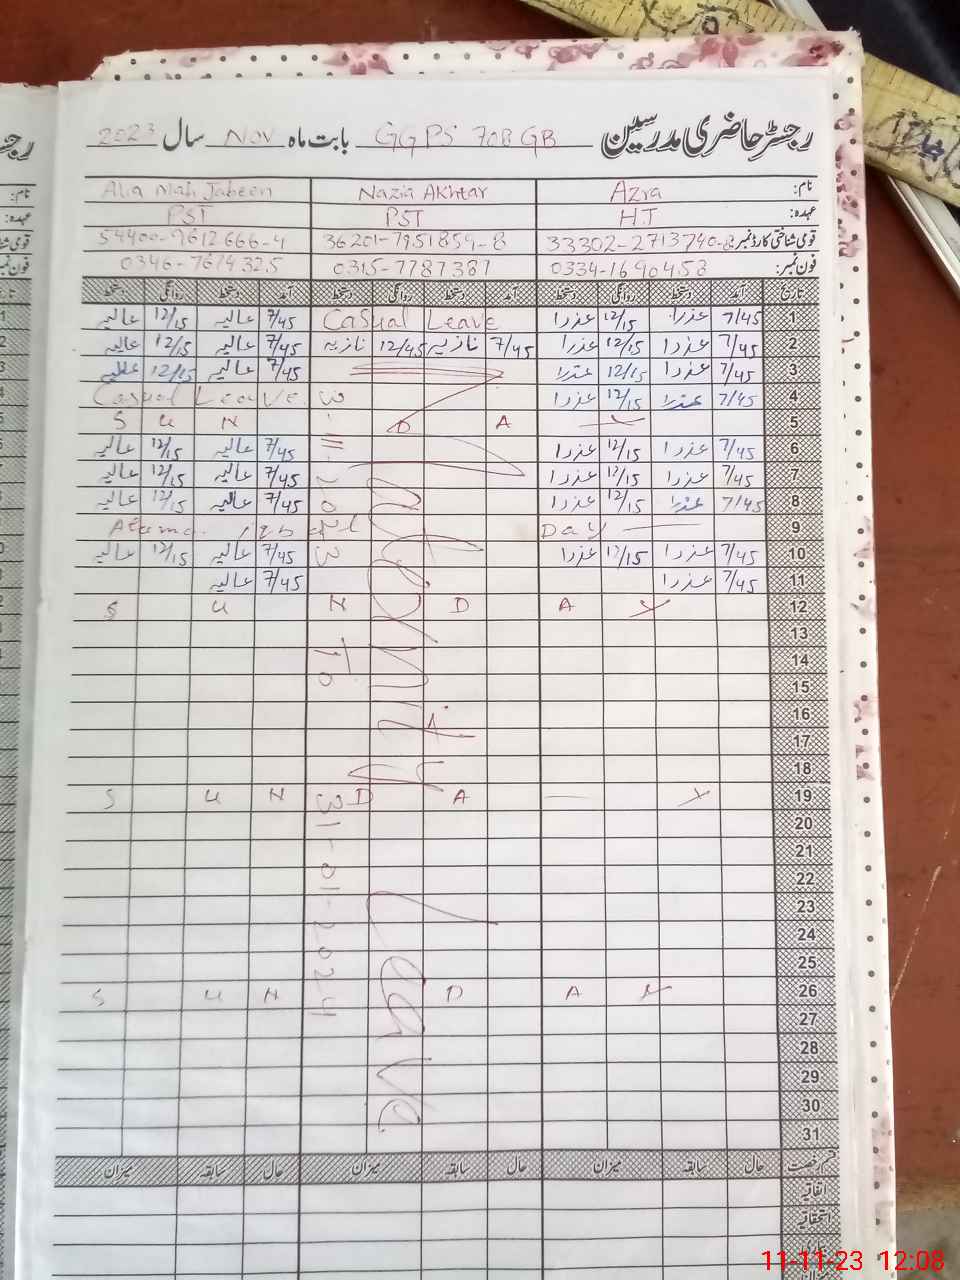 رجسٹر حاضری مدرسین GGPS 708 GB بابت ماہ Nov سال 2023
نام: Azra Nazia Akhtar Alia Mah Jabeen
عہدہ: HT PST PST
قومی شناختی کارڈ نمبر 33302-2713740-8 36201-7951859-8 54400-9612666-4
فون نمبر: 0334-1690458 0315-7787387 0346-7674325
تاریخ آمد دستخط روانگی دستخط آمد دستخط روانگی دستخط آمد دستخط روانگی دستخط
1 7/45 عذرا 12/15 عذرا Casual Leave 7/45 عالیہ 12/15 عالیہ
2 7/45 عذرا 12/15 عذرا 7/45 نازیہ 12/45 نازیہ 7/45 عالیہ 12/15 عالیہ
3 7/45 عذرا 12/15 عذرا 7/45 عالیہ 12/15 عالیہ
4 7/45 عذرا 12/15 عذرا Casual Leave
5 S U N D A Y
6 7/45 عذرا 12/15 عذرا 7/45 عالیہ 12/15 عالیہ
7 7/45 عذرا 12/15 عذرا 7/45 عالیہ 12/15 عالیہ
8 7/45 عذرا 12/15 عذرا 7/45 عالیہ 12/15 عالیہ
9 Day
10 7/45 عذرا 12/15 عذرا 7/45 عالیہ 12/15 عالیہ
11 7/45 عذرا 7/45 عالیہ
12 S U N D A Y
13
14
15
16
17
18
19 S U N D A Y
20
21
22
23
24
25
26 S U N D A Y
27
28
29
30
31
Maternity Leave
3-11-2023 To 31-01-2024
قسم رخصت حال سابقہ میزان حال سابقہ میزان حال سابقہ میزان
اتفاقیہ
استحقاقیہ
بیماری
میزان
11-11-23 12:08